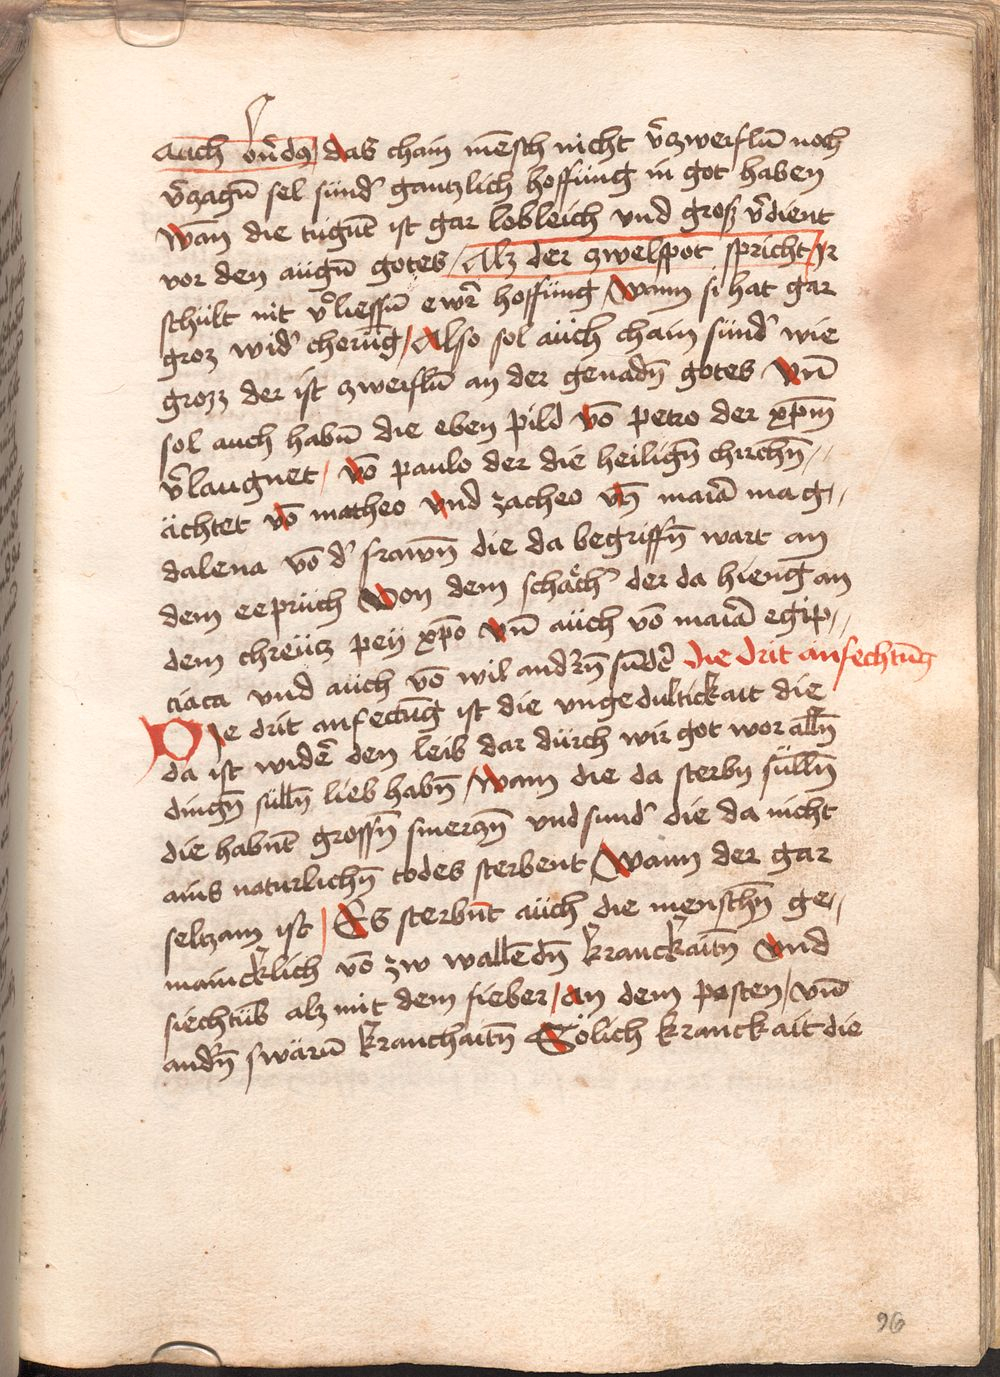 auch bn̄dꝫ / das chain mēsch nicht v̄zweiflū noch
v̄zagn̄ sel sünd' gantzlich hoffüng in got haben
Wan die tugn̄t ist gar lobleich vnd groß v̄dient
vor den augn̄ gotes / Alz der zwelfpot spricht / Ir
schült nit v̊liessn̄ ewr̄ hoffüng / Wann si hat gar
groz wid' cherūg / Also sol aüch chain sünd' wie
grozz der ist zweiflū an der genadn̄ gotes Vn̄
sol auch habn̄ die eben pild vō petro der xp̄m
v̄laugnet / vō paulo der die heilign̄ chirchn̄ //
ächtet vō matheo vnd zacheo vn̄ maiā mag //
dalena vō d' frawn̄ die da begriffn̄ wart an
dem eeprüch Von dem schäch' der da hieng an
dem chreütz peÿ xp̄o vn̄ aüch vō maiā egip //
ciaca vnd aüch vō wil and'n̄ sūdē die drit anfechtūg
Die drit anfectūg ist die vngedultickait die
da ist widē den leib dar dürch wir got wor alln̄
dingn̄ sülln̄ lieb habn̄ / Wann die da sterbn sülln̄
die habnt̄ grossn̄ smerczn̄ vnd sund' die da nicht
ains naturlichn̄ todes sterbent / Wann der gar
seltzam ist / Es sterbnt̄ aüch die menschn̄ ge //
maincklich vō zw wallēdn̄ kranckaitn̄ vnd
siechtūb alz mit dem fieber / an dem posten / vnd
and'n̄ swärn̄ kranchaitn̄ Sölich kranckait die
96